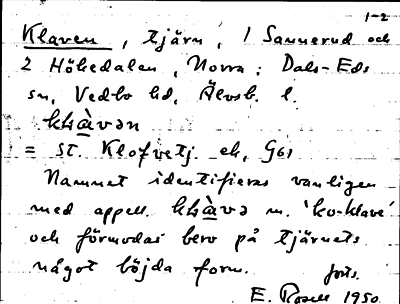 1-2
Klaven, tjärn, 1 Sannerud och
2 Höbedalen, Norra; Dals-Eds
sn, Vedbo hd, Älvsb. l.
= st. Klofvetj. ek, G61
Namnet identifieras vanligen
med appell. m. 'ko-klave'
och förmodas bero på tjärnets
något böjda form.
forts.
E. Rosell 1950